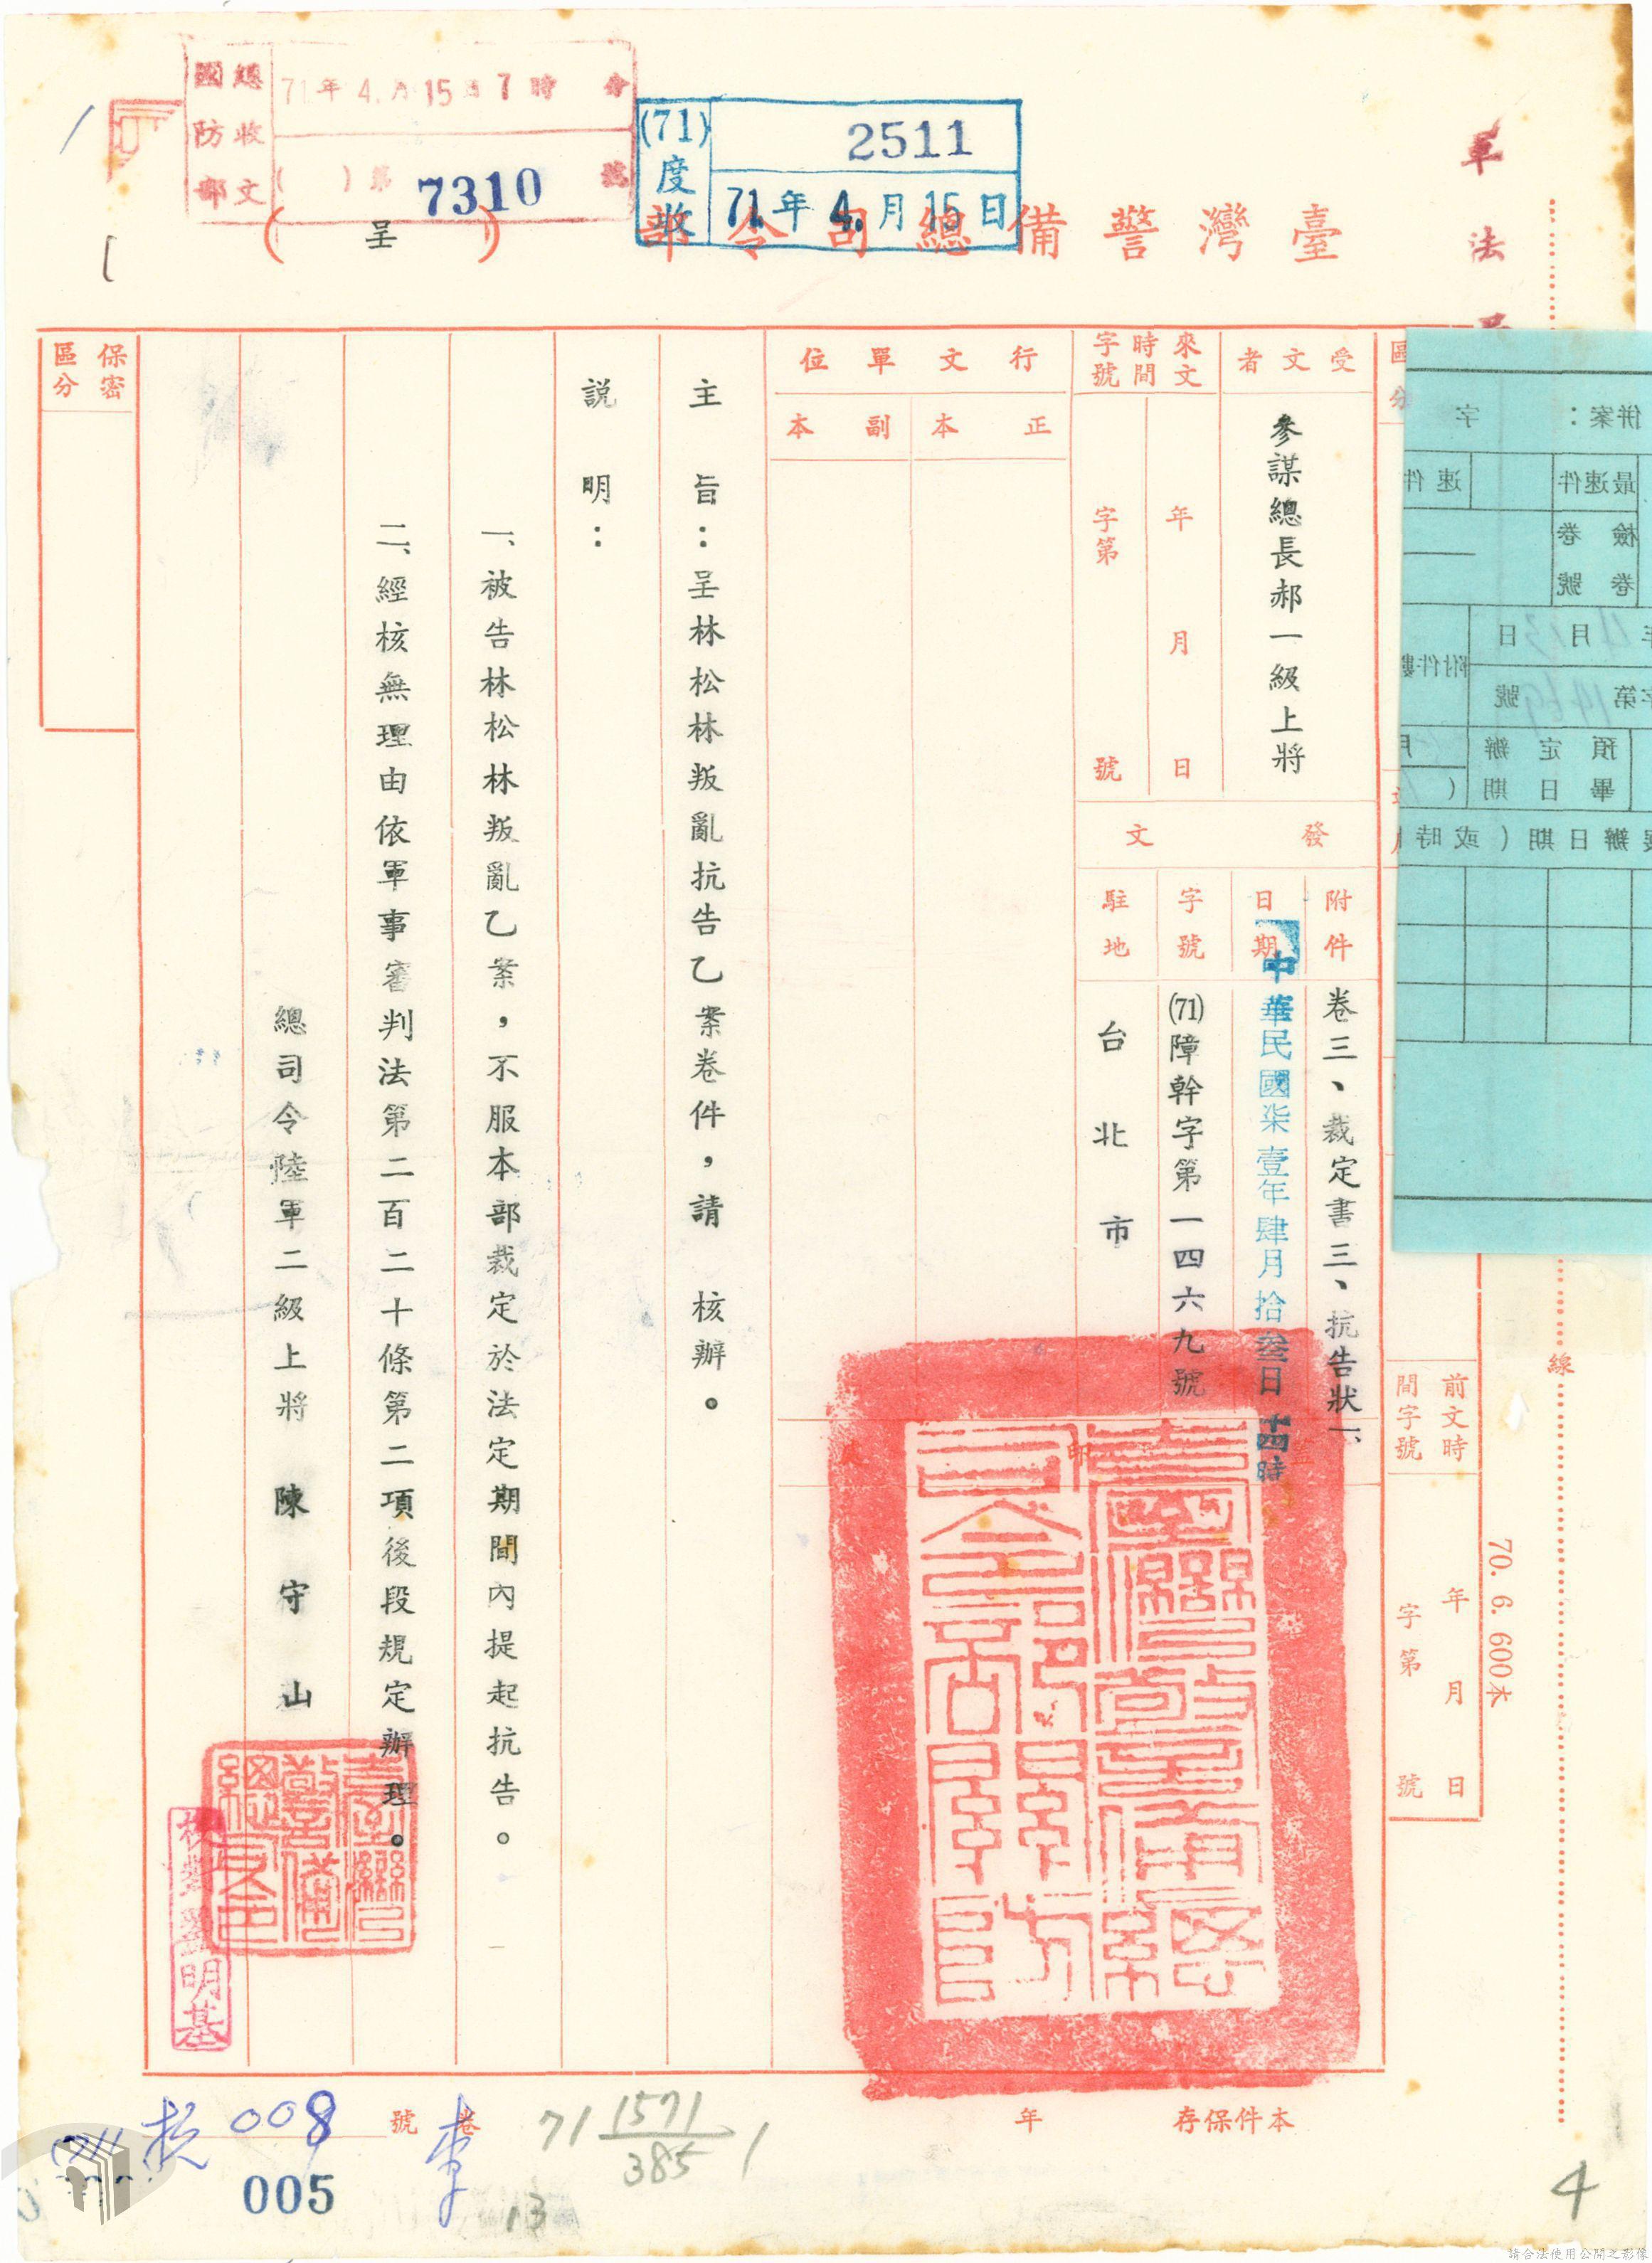 國防部
總收文
71年4月15日7時
( )第7310號
(71)度收
2511
71年4月15日
軍法
臺灣警備總司令部
(呈)
保密
區分
受文者
參謀總長郝一級上將
來文
時間
字號
年 月 日
字第 號
行文單位
正本
副本
發文
附件
卷三、裁定書三、抗告狀一、
日期
中華民國柒壹年肆月拾叁日十四時
字號
(71)障幹字第一四六九號
駐地
台北市
主旨：呈林松林叛亂抗告乙案卷件，請 核辦。
説明：
一、被告林松林叛亂乙案，不服本部裁定於法定期間內提起抗告。
二、經核無理由依軍事審判法第二百二十條第二項後段規定辦理。
總司令陸軍二級上將 陳守山
臺灣警備總司令
前文時
間字號
年 月 日
字第 號
線
70. 6. 600本
併案： 字
最速件
速件
檢卷
卷號
4月13日
附件
字第1469號
預定辦
畢日期(
辦日期(或時
本件保存 年
卷 號
008
005
71 1571
385
1
13
4
請合法使用公開之影像